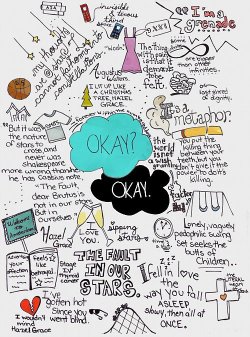 invisible
& tenuous
third
space
AIA
I'm a
grenade
my thoughts
are stars
I can't
fathom into
constellations
"Wisdom"
The thing
with pain
is that it
demands
to be
felt.
Augustus
Waters
I LIT UP LIKE
A CHRISTMAS
TREE, HAZEL
GRACE.
Some
infinities
are bigger
than other
infinities.
any
last shred
of dignity.
"But it was
the nature
of stars
to cross
and
never was
Shakespeare
more wrong than when
he has Cassius note,
"The fault,
dear Brutus is
not in our stars
But in
ourselves"
OKAY?
OKAY.
It's a
metaphor.
the
world
is not
a wish
granting
factory
YOU put the
killing thing
between your
teeth, but you
don't give it the
power to do its
killing.
Welcome to
Amsterdam
Hazel
Grace
I
Love
You.
sipping
stars
Lonely, vaguely
pedophilic swing
set seeks the
butts of
Children.
your
affection
Feels
like
betrayal.
Stage
IV
Thyroid
cancer
THE FAULT
IN OUR
STARS.
I fell in love
the
way you fall
ASLEEP
slowly, then all at
ONCE.
I wouldn't
mind
Hazel Grace
You've
gotten hot
Since you
went blind.